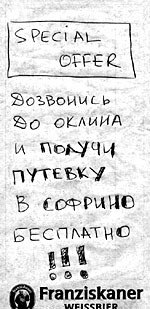 SPECIAL
OFFER
ДОЗВОНИСЬ
ДО ОКЛИНА
И ПОЛУЧИ
ПУТЕВКУ
В СОФРИНО
БЕСПЛАТНО
!!!
Franziskaner
WEISSBIER